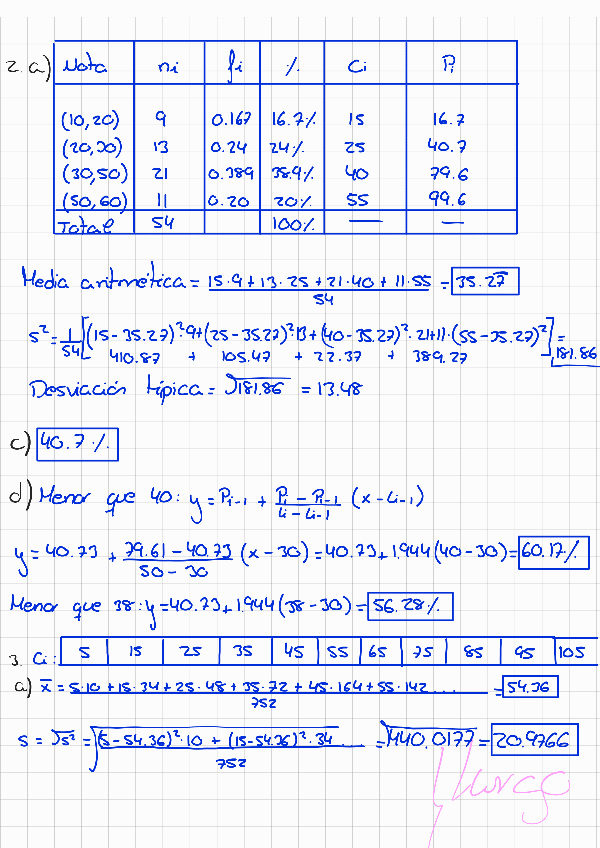 2. a) Nota ni fi % Ci Pi
(10,20) 9 0.167 16.7% 15 16.7
(20,30) 13 0.24 24% 25 40.7
(30,50) 21 0.389 38.9% 40 79.6
(50,60) 11 0.20 20% 55 99.6
Total 54 100% — —
Media aritmética = 15·9+13·25+21·40+11·55 / 54 = 35.27
s² = 1/54 [(15-35.27)²·9+(25-35.27)²·13+(40-35.27)²·21+11·(55-35.27)²] =
410.87 + 105.47 + 22.37 + 389.27 181.86
Desviación típica = √181.86 = 13.48
c) 40.7%
d) Menor que 40: y = Pi-1 + Pi - Pi-1 / Li - Li-1 (x - Li-1)
y = 40.73 + 79.61 - 40.73 / 50 - 30 (x - 30) = 40.73 + 1.944 (40 - 30) = 60.17%
Menor que 38: y = 40.73 + 1.944 (38 - 30) = 56.28%
3. Ci: 5 15 25 35 45 55 65 75 85 95 105
a) x̄ = 5·10+15·34+25·48+35·72+45·164+55·142...... / 752 = 54.36
s = √s² = √(5-54.36)²·10 + (15-54.36)²·34 ..... / 752 = √440.0177 = 20.9766